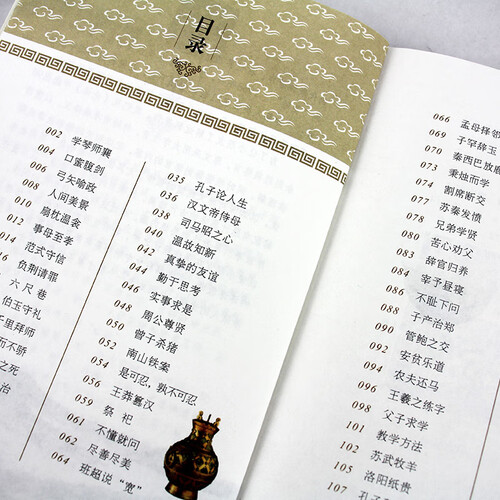 目录
002 学琴师襄
004 口蜜腹剑
006 弓矢喻政
008 人间美景
010 扇枕温衾
012 事母至孝
014 范式守信
016 负荆请罪
六尺巷
伯玉守礼
千里拜师
而不骄
之死
治
035 孔子论人生
036 汉文帝侍母
038 司马昭之心
040 温故知新
042 真挚的友谊
044 勤于思考
046 实事求是
048 周公尊贤
050 曾子杀猪
052 南山铁案
054 是可忍，孰不可忍
056 王莽篡汉
059 祭祀
061 不懂就问
062 尽善尽美
064 班超说“宽”
066 孟母择邻
069 子罕辞玉
070 秦西巴放鹿
073 秉烛而学
074 割席断交
077 苏秦发愤
078 兄弟学贤
080 苦心劝父
083 辞官归养
084 宰予昼寝
086 不耻下问
088 子产治郑
090 管鲍之交
092 安贫乐道
094 农夫还马
096 王羲之练字
098 父子求学
101 教学方法
102 苏武牧羊
105 洛阳纸贵
107